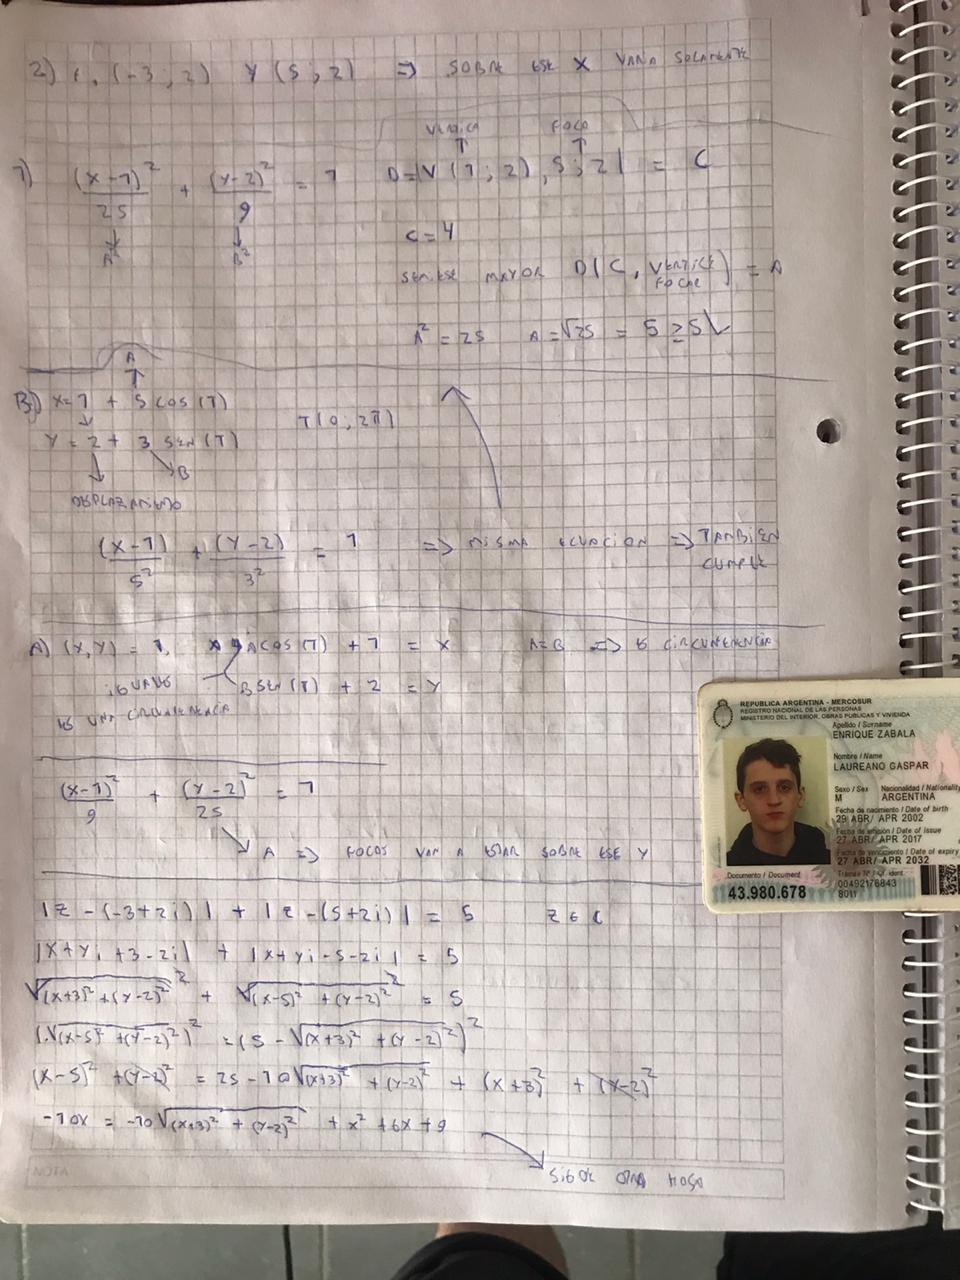 2) (-3 ; 2) Y (5 ; 2) => SOBRE ESE X VARIA SOLAMENTE
VERTICE FOCO
1) (X-1)²/25 + (Y-2)²/9 = 1 D=|V (1 ; 2) , 5 ; 2| = C
A² B²
C = 4
SEMIESE MAYOR D(C, VERTICE FOCAL) = A
A² = 25 A = √25 = 5 ≥ 5
A
B) X = 1 + 5 COS (T)
T (0 ; 2π)
Y = 2 + 3 SEN (T)
B
DESPLAZAMIENTO
(X-1)/5² + (Y-2)/3² = 1 => MISMA ECUACION => TAMBIEN CUMPLE
A) (X,Y) = A COS (T) + 1 = X A=B => ES CIRCUNFERENCIA
IGUALES B SEN (T) + 2 = Y
ES UNA CIRCUNFERENCIA
(X-1)²/9 + (Y-2)²/25 = 1
A => FOCOS VAN A ESTAR SOBRE ESE Y
|Z - (-3+2i)| + |Z - (5+2i)| = 5 Z ∈ C
|X+Yi +3-2i| + |X+Yi-5-2i| = 5
√(X+3)² + (Y-2)² + √(X-5)² + (Y-2)² = 5
(√(X-5)² + (Y-2)²)² = (5 - √(X+3)² + (Y-2)²)²
(X-5)² + (Y-2)² = 25 - 10√(X+3)² + (Y-2)² + (X+3)² + (Y-2)²
-10X = -10√(X+3)² + (Y-2)² + X² + 6X + 9
SIGUE OTRA HOJA
REPUBLICA ARGENTINA - MERCOSUR
REGISTRO NACIONAL DE LAS PERSONAS
MINISTERIO DEL INTERIOR, OBRAS PUBLICAS Y VIVIENDA
Apellido / Surname
ENRIQUE ZABALA
Nombre / Name
LAUREANO GASPAR
Sexo / Sex Nacionalidad / Nationality
M ARGENTINA
Fecha de nacimiento / Date of birth
29 ABR/ APR 2002
Fecha de emisión / Date of issue
27 ABR/ APR 2017
Fecha de vencimiento / Date of expiry
27 ABR/ APR 2032
Documento / Document
43.980.678
Trámite Nº / Of. ident.
00492176843
8017